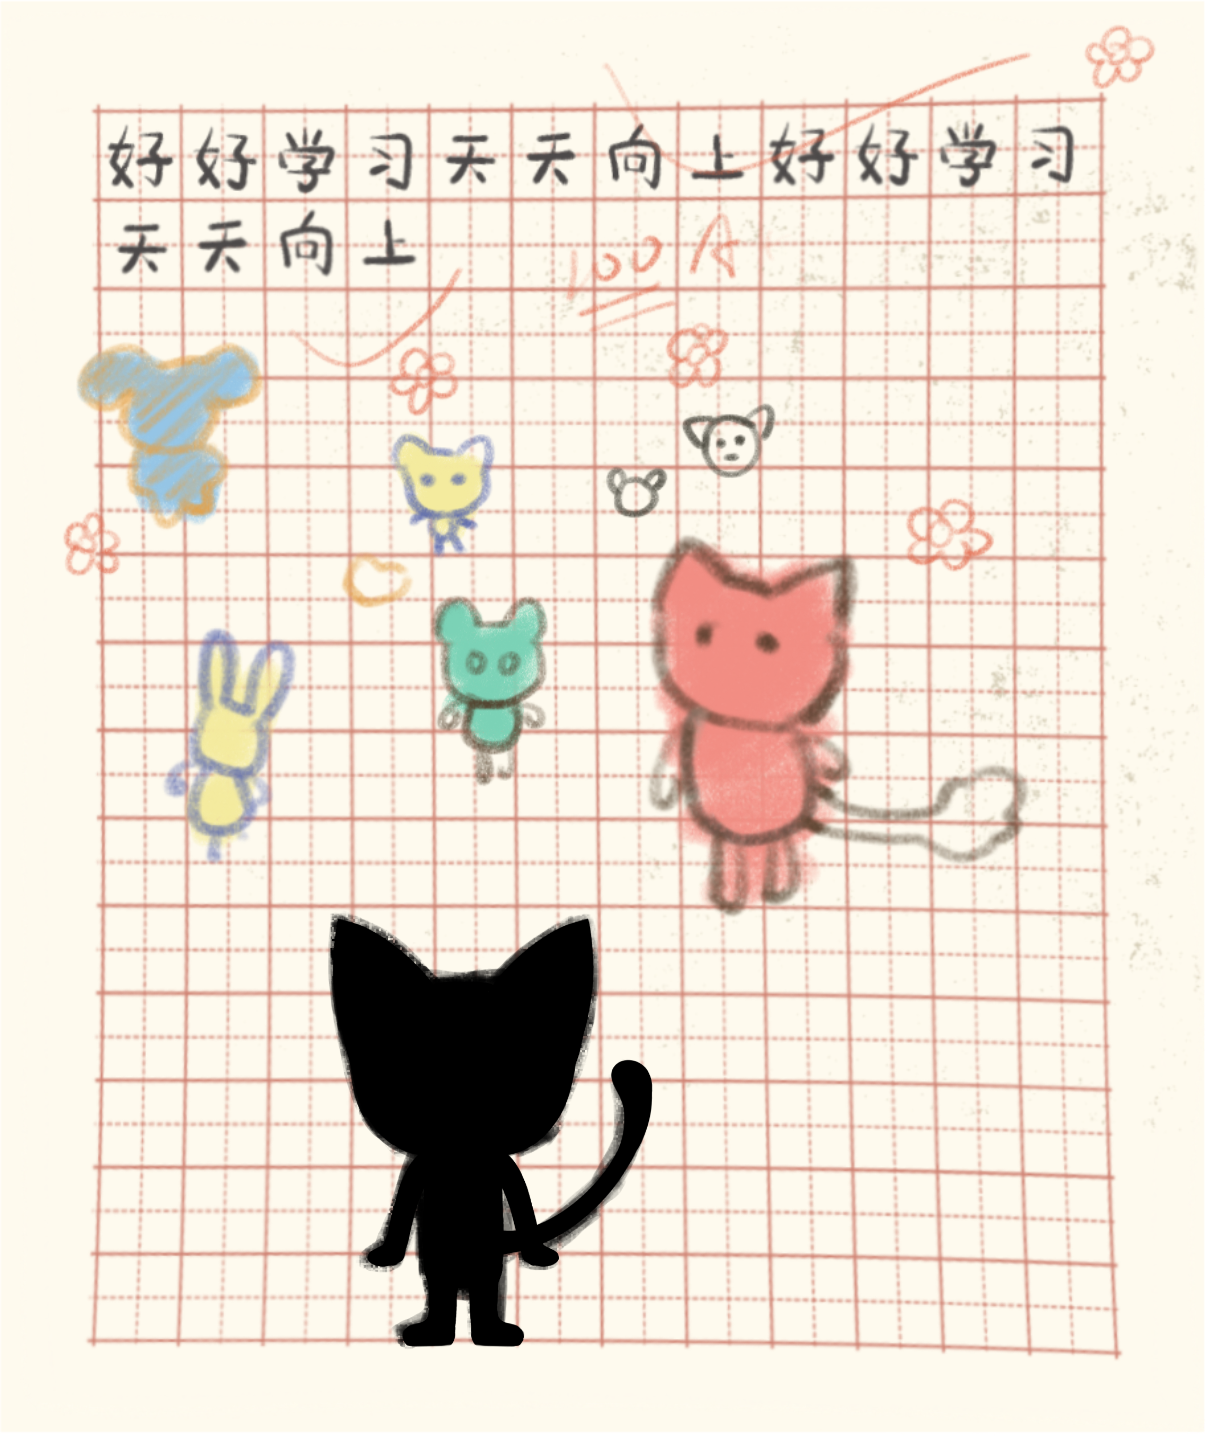 好好学习天天向上好好学习
天天向上
100 A